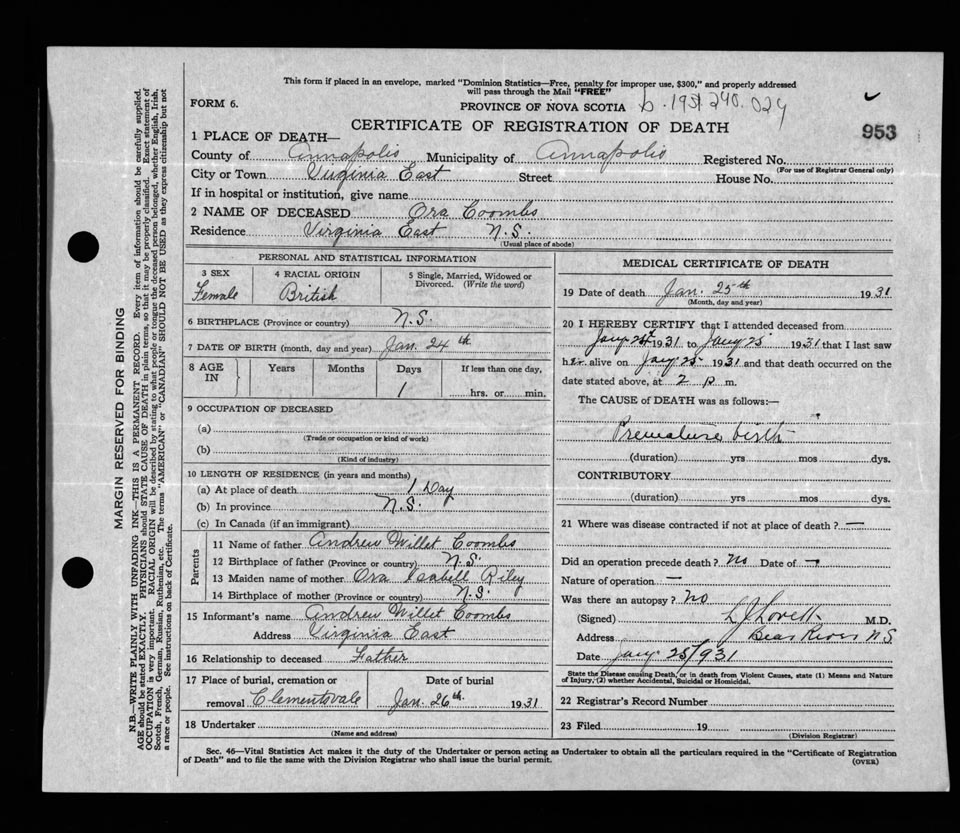 This form if placed in an envelope, marked "Dominion Statistics—Free, penalty for improper use, $300," and properly addressed
will pass through the Mail "FREE"
FORM 6.
PROVINCE OF NOVA SCOTIA b. 1931 240. 024
CERTIFICATE OF REGISTRATION OF DEATH
953
1 PLACE OF DEATH—
County of Annapolis Municipality of Annapolis Registered No.
(For use of Registrar General only)
City or Town Virginia East Street House No.
If in hospital or institution, give name
2 NAME OF DECEASED Ora Coombs
Residence Virginia East N.S.
(Usual place of abode)
PERSONAL AND STATISTICAL INFORMATION
3 SEX 4 RACIAL ORIGIN 5 Single, Married, Widowed or
Divorced. (Write the word)
Female British
6 BIRTHPLACE (Province or country) N.S.
7 DATE OF BIRTH (month, day and year) Jan. 24th
8 AGE IN Years Months Days If less than one day,
1 hrs. or min.
9 OCCUPATION OF DECEASED
(a)
(Trade or occupation or kind of work)
(b)
(Kind of industry)
10 LENGTH OF RESIDENCE (in years and months)
(a) At place of death 1 Day
(b) In province N.S.
(c) In Canada (if an immigrant)
Parents
11 Name of father Andrew Willet Coombs
12 Birthplace of father (Province or country) N.S.
13 Maiden name of mother Ora Isabell Riley
14 Birthplace of mother (Province or country) N.S.
15 Informant's name Andrew Willet Coombs
Address Virginia East
16 Relationship to deceased Father
17 Place of burial, cremation or Date of burial
removal Clementsvale Jan. 26th 1931
18 Undertaker
(Name and address)
MEDICAL CERTIFICATE OF DEATH
19 Date of death Jan. 25th 1931
(Month, day and year)
20 I HEREBY CERTIFY that I attended deceased from
1931 to Jany 25 1931 that I last saw
her alive on Jany 25 1931 and that death occurred on the
date stated above, at 2 p m.
The CAUSE of DEATH was as follows:—
Premature birth
(duration) yrs mos dys.
CONTRIBUTORY
(duration) yrs mos dys.
21 Where was disease contracted if not at place of death? —
Did an operation precede death? No Date of —
Nature of operation —
Was there an autopsy? No
(Signed) L J Lovett M.D.
Address Bear River N S
Date Jany 25/931
State the Disease causing Death, or in death from Violent Causes, state (1) Means and Nature
of Injury, (2) whether Accidental, Suicidal or Homicidal.
22 Registrar's Record Number
23 Filed 19
(Division Registrar)
Sec. 46—Vital Statistics Act makes it the duty of the Undertaker or person acting as Undertaker to obtain all the particulars required in the "Certificate of Registration
of Death" and to file the same with the Division Registrar who shall issue the burial permit.
(OVER)
MARGIN RESERVED FOR BINDING
N.B.—WRITE PLAINLY WITH UNFADING INK—THIS IS A PERMANENT RECORD. Every item of information should be carefully supplied.
AGE should be stated EXACTLY. PHYSICIANS should STATE CAUSE OF DEATH in plain terms, so that it may be properly classified. Exact statement of
OCCUPATION is very important. RACIAL ORIGIN will be described by stating to what people or tongue the deceased person belonged, whether English, Irish,
Scotch, French, German, Russian, Ruthenian, etc. The terms "AMERICAN" or "CANADIAN" SHOULD NOT BE USED as they express citizenship but not
a race or people. See instructions on back of Certificate.